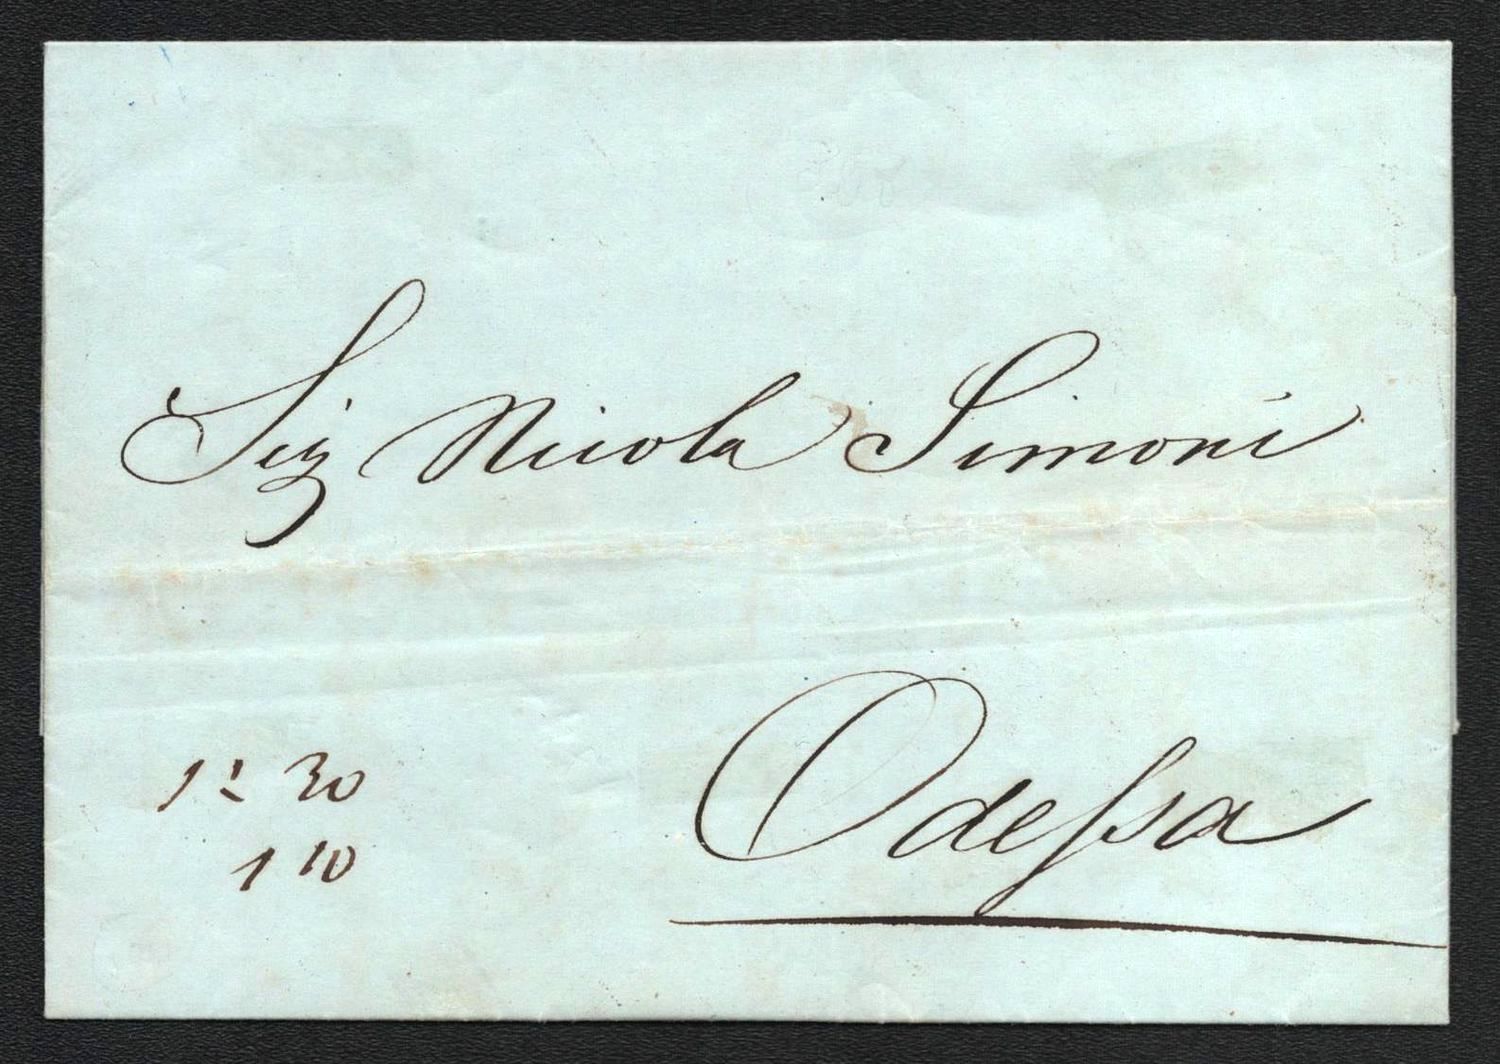 Sig Nicola Simoni
Odessa
30
1 10